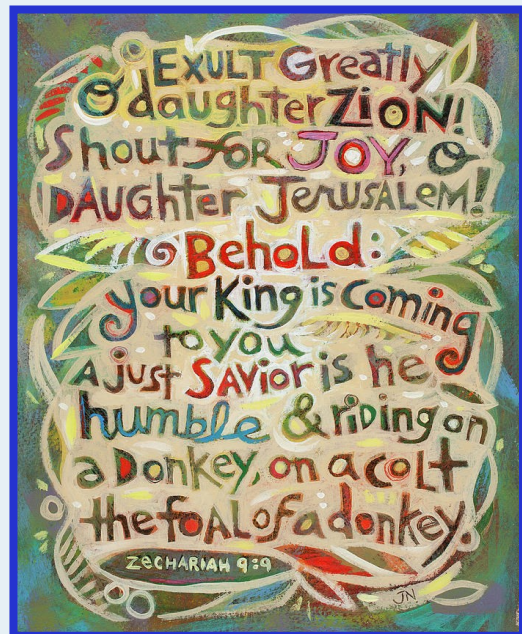 EXULT Greatly
O daughter ZION!
Shout for JOY, O
DAUGHter JeruSALem!
BehoLd:
your King is coming
to you
A just SAvior is he
humble & riDing on
a Donkey, on a coLt
the foAL of a donkey.
ZeCHARIAH 9:9
JN